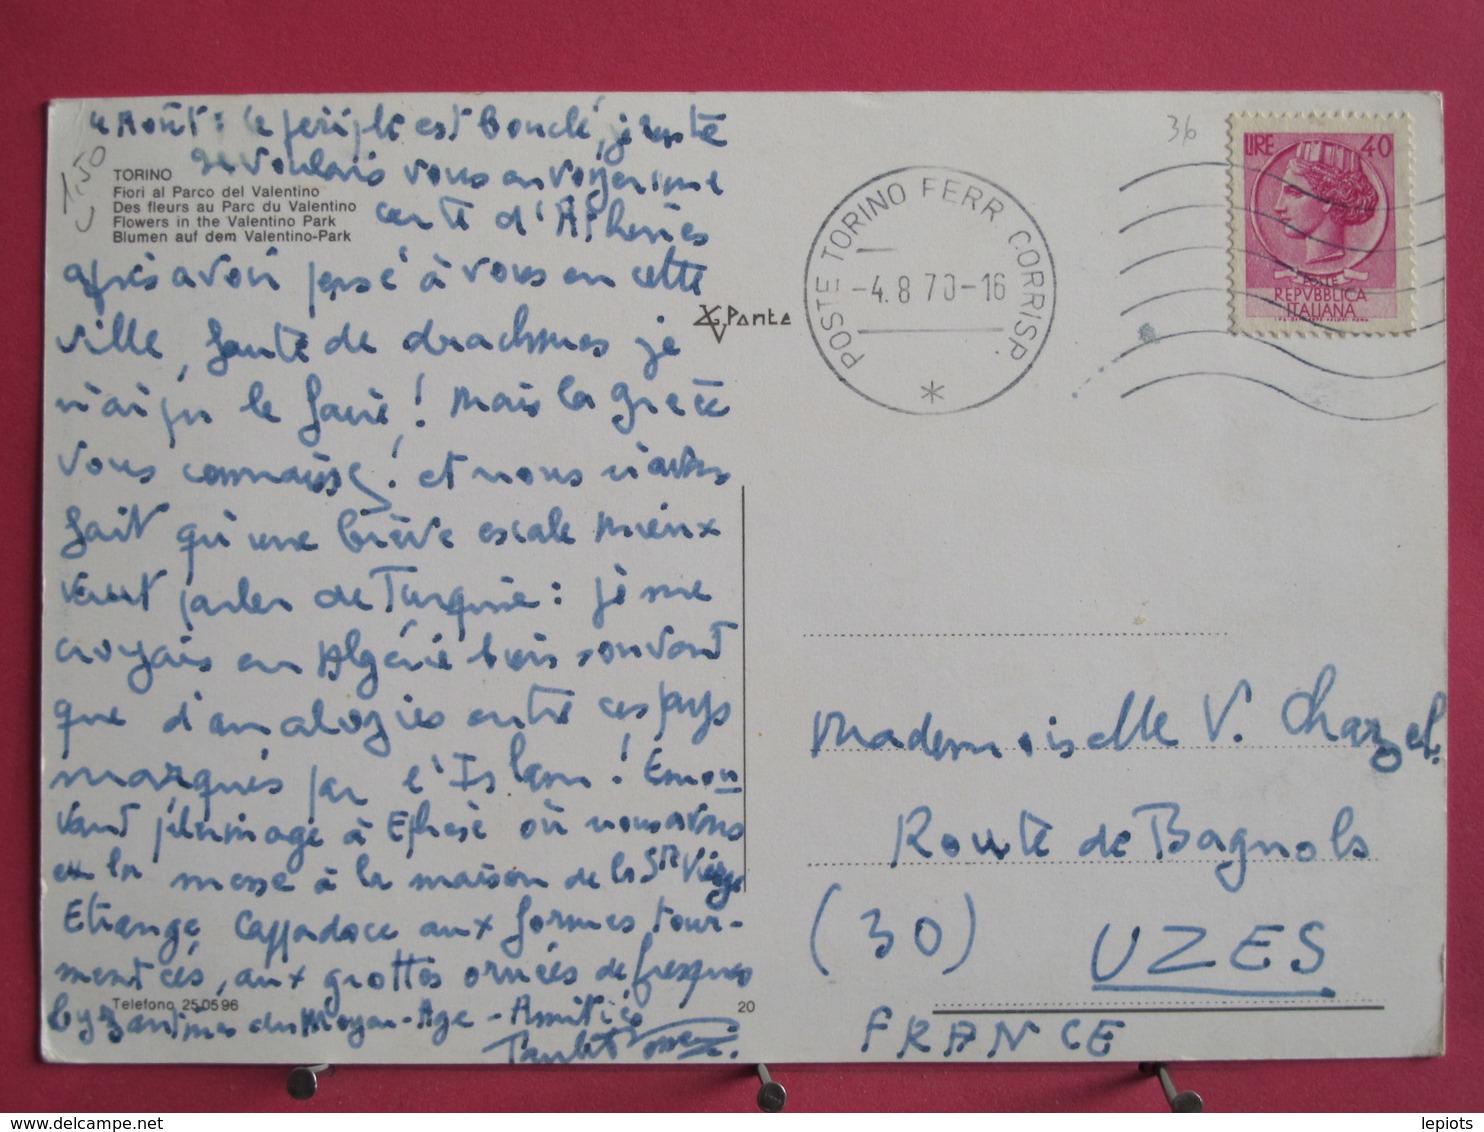 4 Août : le périple est bouclé, je reste
Je voulais vous envoyer une
carte d'Athènes
après avoir pensé à vous en cette
ville, faute de drachmes je
n'ai pu le faire ! Mais la Grèce
vous connaissez ! et nous n'avons
fait qu'une brève escale mieux
vaut parler de Turquie : je me
croyais en Algérie bien souvent
que d'analogies entre ces pays
marqués par l'Islam ! Emou
vant pélerinage à Ephèse où nous avons
eu la messe à la maison de la Ste Vierge
Etrange Cappadoce aux formes tour-
mentées, aux grottes ornées de fresques
byzantines du Moyen-Age - Amitiés
TORINO
Fiori al Parco del Valentino
Des fleurs au Parc du Valentino
Flowers in the Valentino Park
Blumen auf dem Valentino-Park
1,50
Panta
Telefono 250596
20
36
POSTE TORINO FERR. CORRISP.
-4.8.70-16
LIRE 40
POSTE
REPVBBLICA
ITALIANA
Mademoiselle V. Chazel.
Route de Bagnols
(30) UZES
FRANCE
lepiots
delcampe.net